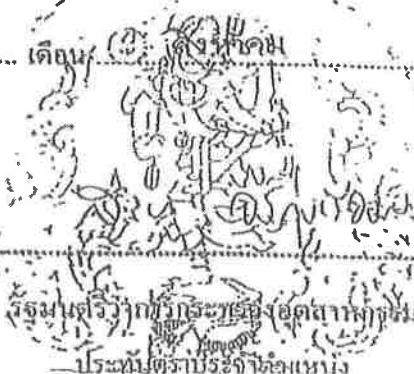 เดือน สิงหาคม
รัฐมนตรีว่าการกระทรวงอุตสาหกรรม
ประทับตราประจำตำแหน่ง